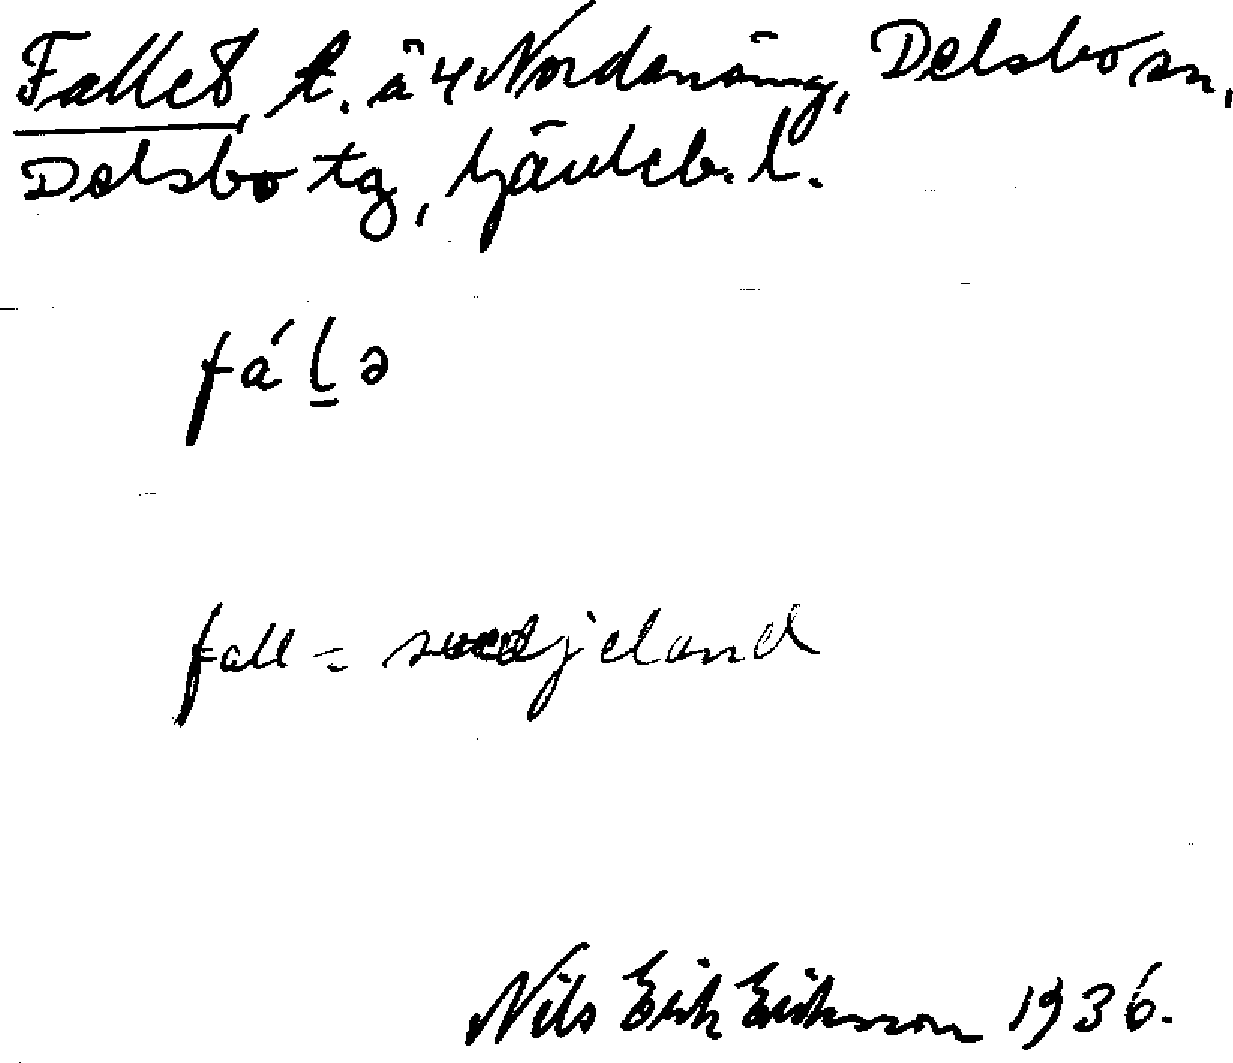 Fallet, t. å 4 Nordanäng, Delsbo sn,
Delsbo tg, Gävleb. l.
fáḻə
fall = svedjeland
Nils Erik Eriksson 1936.